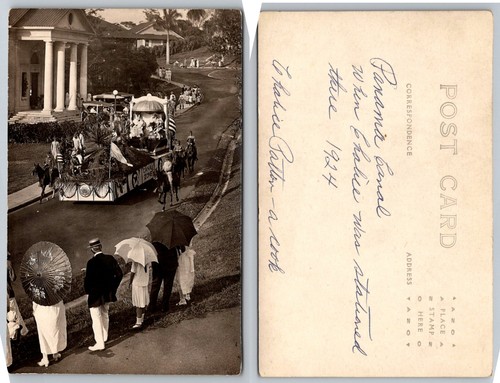 POST CARD
CORRESPONDENCE
ADDRESS
PLACE
STAMP
HERE
AZO
AZO
Panama Canal
When Chalice was stationed
there 1924
Chalice Patton - a cook